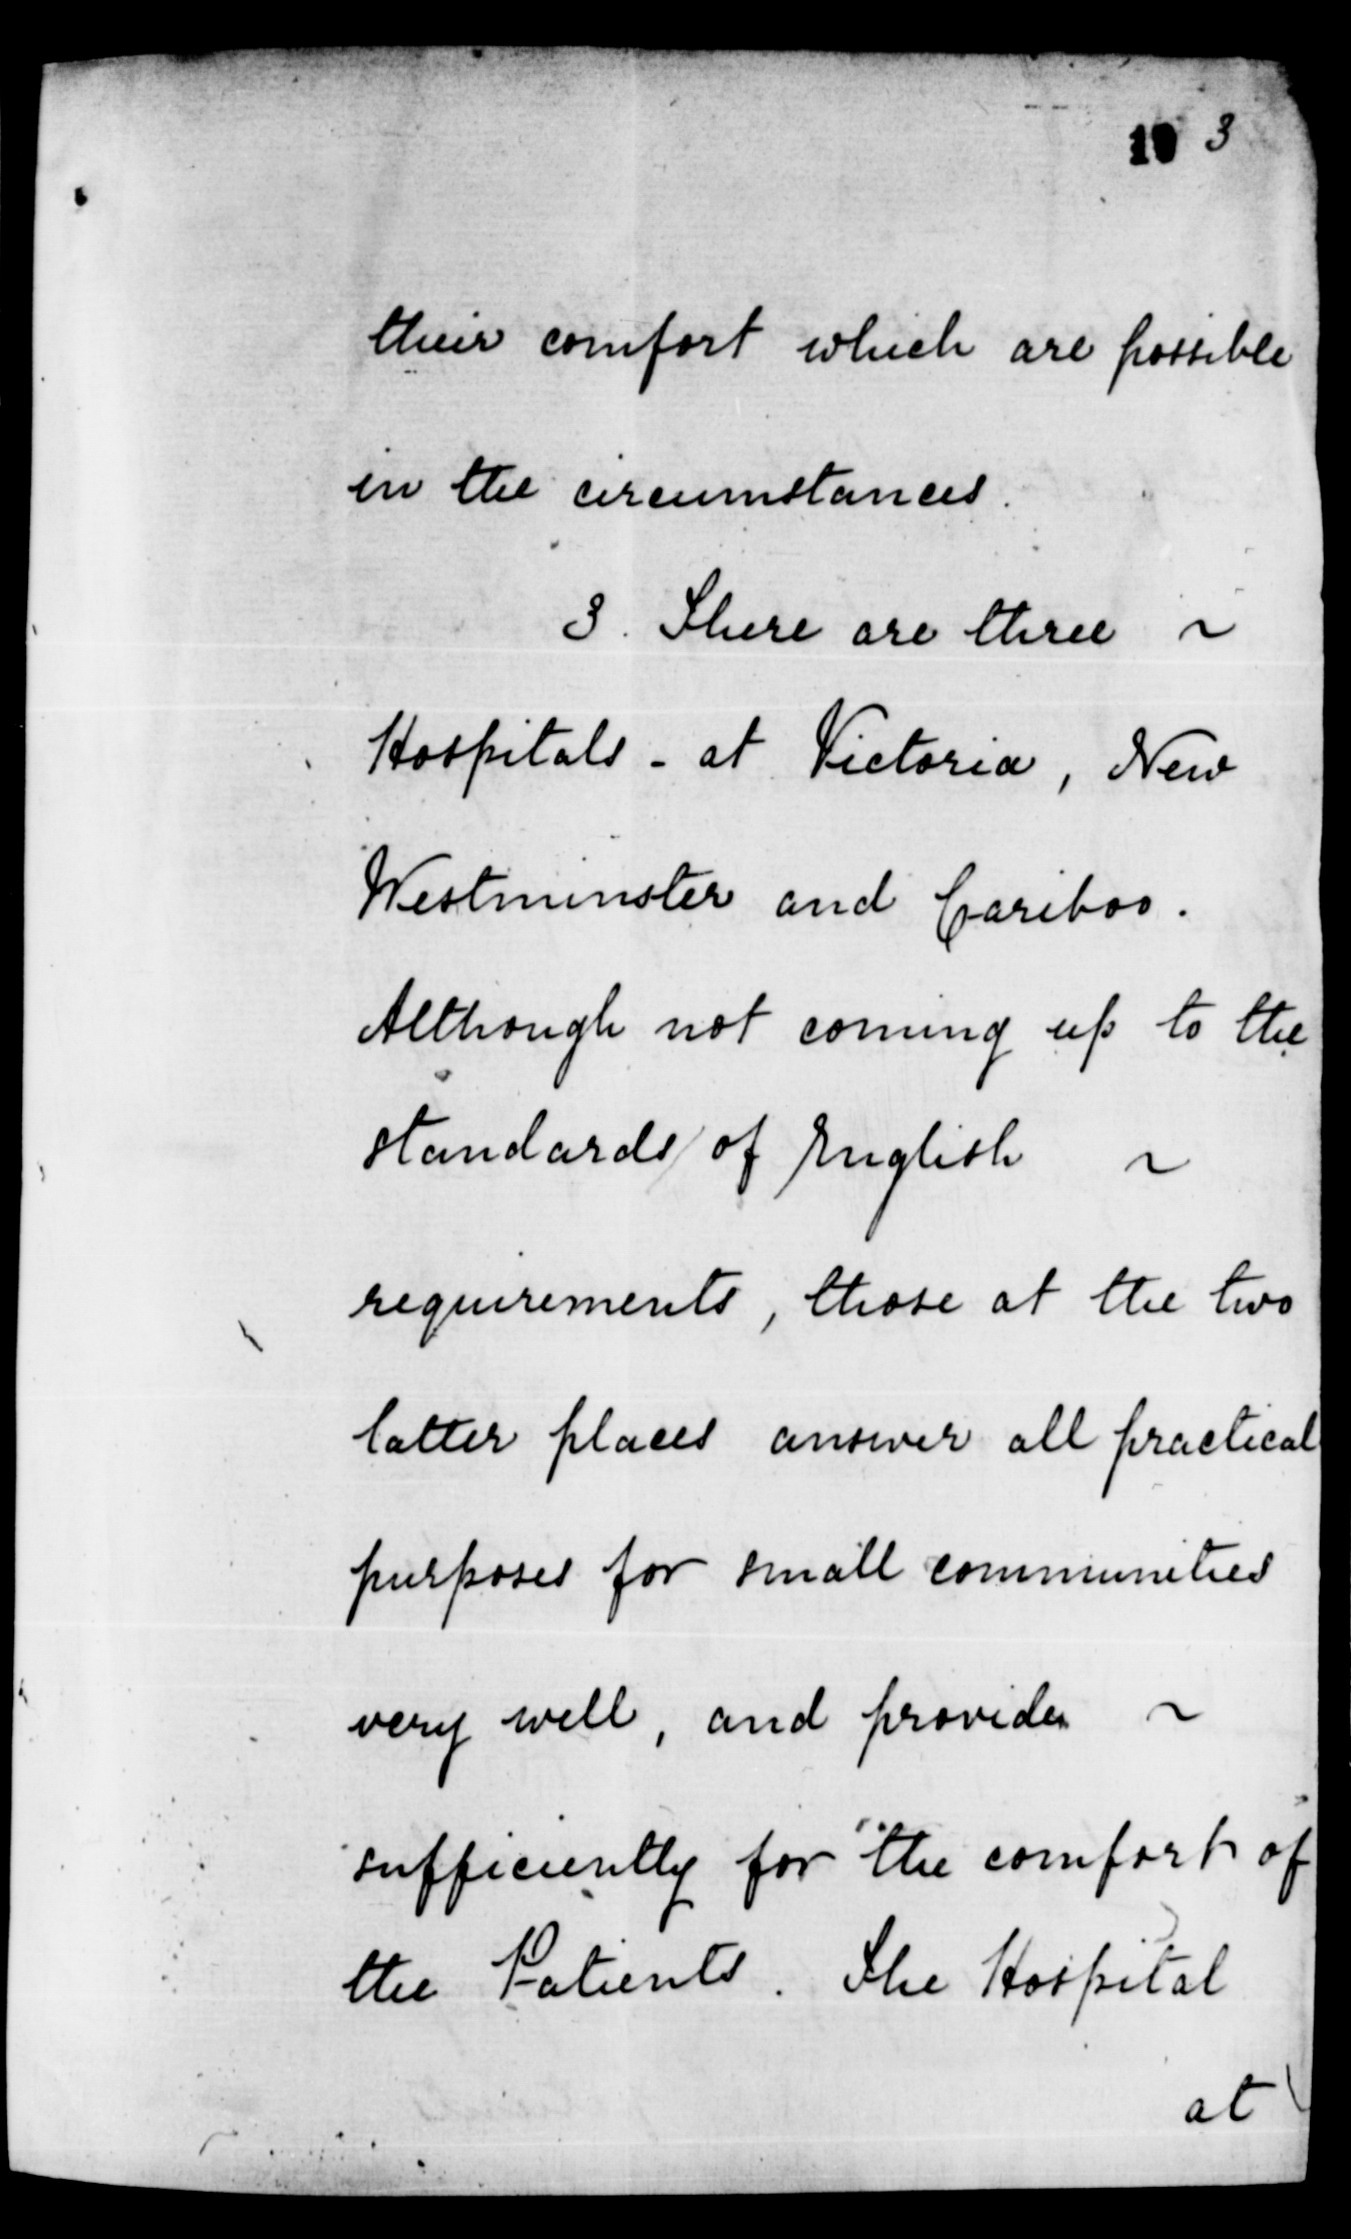 10 3
their comfort which are possible
in the circumstances.
3. There are three ~
Hospitals - at Victoria, New
Westminster and Cariboo.
Although not coming up to the
standards of English ~
requirements, those at the two
latter places answer all practical
purposes for small communities
very well, and provides ~
sufficiently for the comfort of
the Patients. The Hospital
at